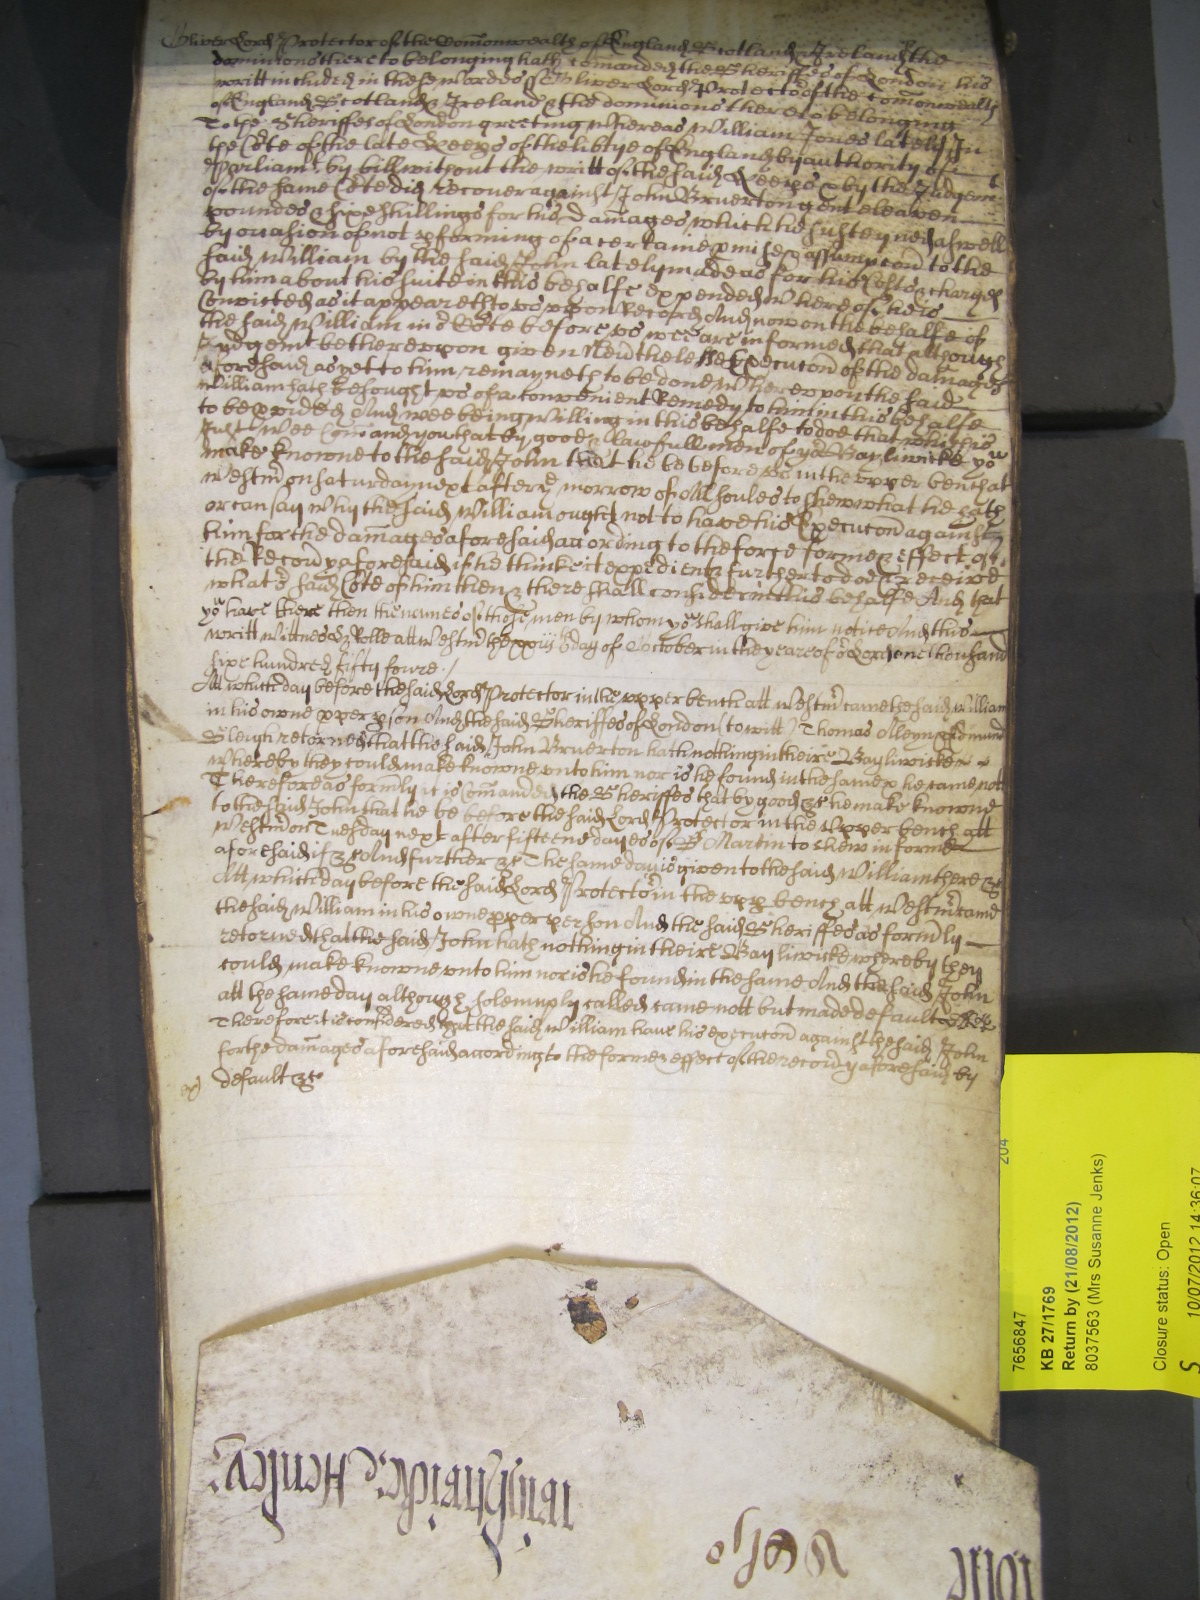 Oliver Lord Protector of the Com̃onwealth of England Scotland & Ireland & the
dominions thereto belonging hath com̃anded the Sheriffes of London his
writt included in these wordes Oliver Lord Protector of the Com̃onwealth
of England Scotland & Ireland & the dominions thereto belonging
To the Sheriffes of London greeting Whereas William Jones lately In
the Co͠te of the late Keep͠s of the lib͠tye of England by authority of
Parliamt by bill without the writt of the said Keep͠s & by the Judgemt
of the same Co͠te did recover against John Bruerton gent eleaven
poundes & sixe shillings for his dam̃ages which he susteyned aswell
by occasion of not p͠forming of a certaine p͠mise & assumpcon̄ to the
said William by the said John lately made as for his Costs & charges
by him about his suite in this behalfe expended Whereof he is
Convicted as it appeareth to us upon Record And now on the behalfe of
the said William in o͠r Co͠te before us wee are informed that although
Judgemt be thereupon given Nev͠theles Execucon̄ of the dam̃ages
aforesaid as yet to him remayneth to be done Whereupon the said
William hath besought us of a convenient Remedy to him in this behalfe
to be p͠vided And wee being willing in this behalfe to doe that which is
Just Wee Com̃and you that by good & lawfull men of yor Bayliwicke you
make knowne to the said John that he be before us in the upper bench at
Westmr on Saturday next after ye morrow of All soules to shew what he hath
or can say Why the said William ought not to have his Execucon̄ against
him for the dam̃ages aforesaid according to the force forme & effect of
the Recovry aforesaid if he thinke it expedient & further to doe & receive
what o͠r said Co͠te of him then & there shall consider in this behalfe And that
you have there then the names of those men by whom you shall give him notice And this
writt Wittnes H. Rolle att Westmr the xxiijth day of October in the yeare of or Lord one thousand
sixe hundred fifty foure /
Att which day before the said Lord Protector in the upper bench att Westmr came the said William
in his owne p͠per p͠son And the said Sheriffes of London (to witt) Thomas Alleyn & Edmund
Sleigh retorned that the said John Bruerton hath nothing in theire Bayliwicke
whereby they could make knowne unto him nor is he found in the same & he came not
Therefore as form̃ly it is com̃anded the Sheriffes that by good &c he make knowne
to the said John that he be before the said Lord Protector in the Upper bench att
Westmr on Tuesday next after fifteene dayes of St Martin to shew in forme
aforesaid if &c And further &c The same day is given to the said William there &c
Att which day before the said Lord Protector in the upp͠ bench att Westmr came
the said William in his owne p͠per person And the said Sheriffes as form̃ly
retorned that the said John hath nothing in theire Bayliwicke whereby they
could make knowne unto him nor is he found in the same And the said John
att the same day although solempnly called came nott but made default
Therefore it is considered that the said William have his execucon̄ against the said John
for the dam̃ages aforesaid according to the forme & effect of the recovry aforesaid by
default &c
204
7656847
KB 27/1769
Return by (21/08/2012)
8037563 (Mrs Susanne Jenks)
Closure status: Open
10/07/2012 14:36:07
S